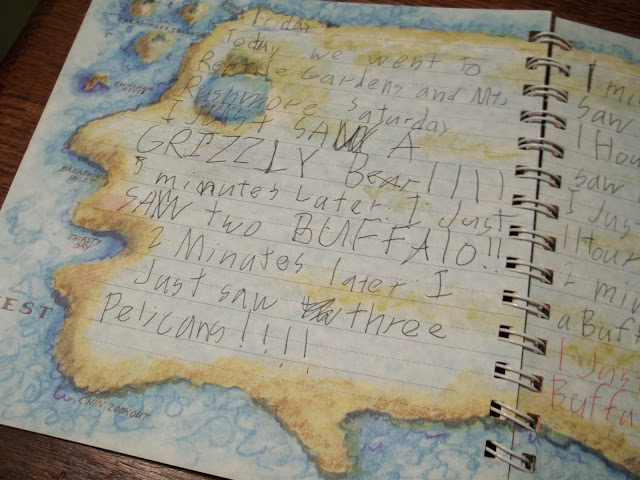 Friday
Today we went To
Reptile Gardens and Mt.
Rushmore Saturday
I Just SAW A
GRIZZLY Bear!!!!
5 minutes Later I Just
SAW two BUFFALO!!
2 Minates later I
Just saw three
Pelicans!!!!
EST
CHIN LOOKOUT
1 mi
saw
1 Hou
saw
I Jus
1 Hour
min
a Buff
I Jus
Buffa